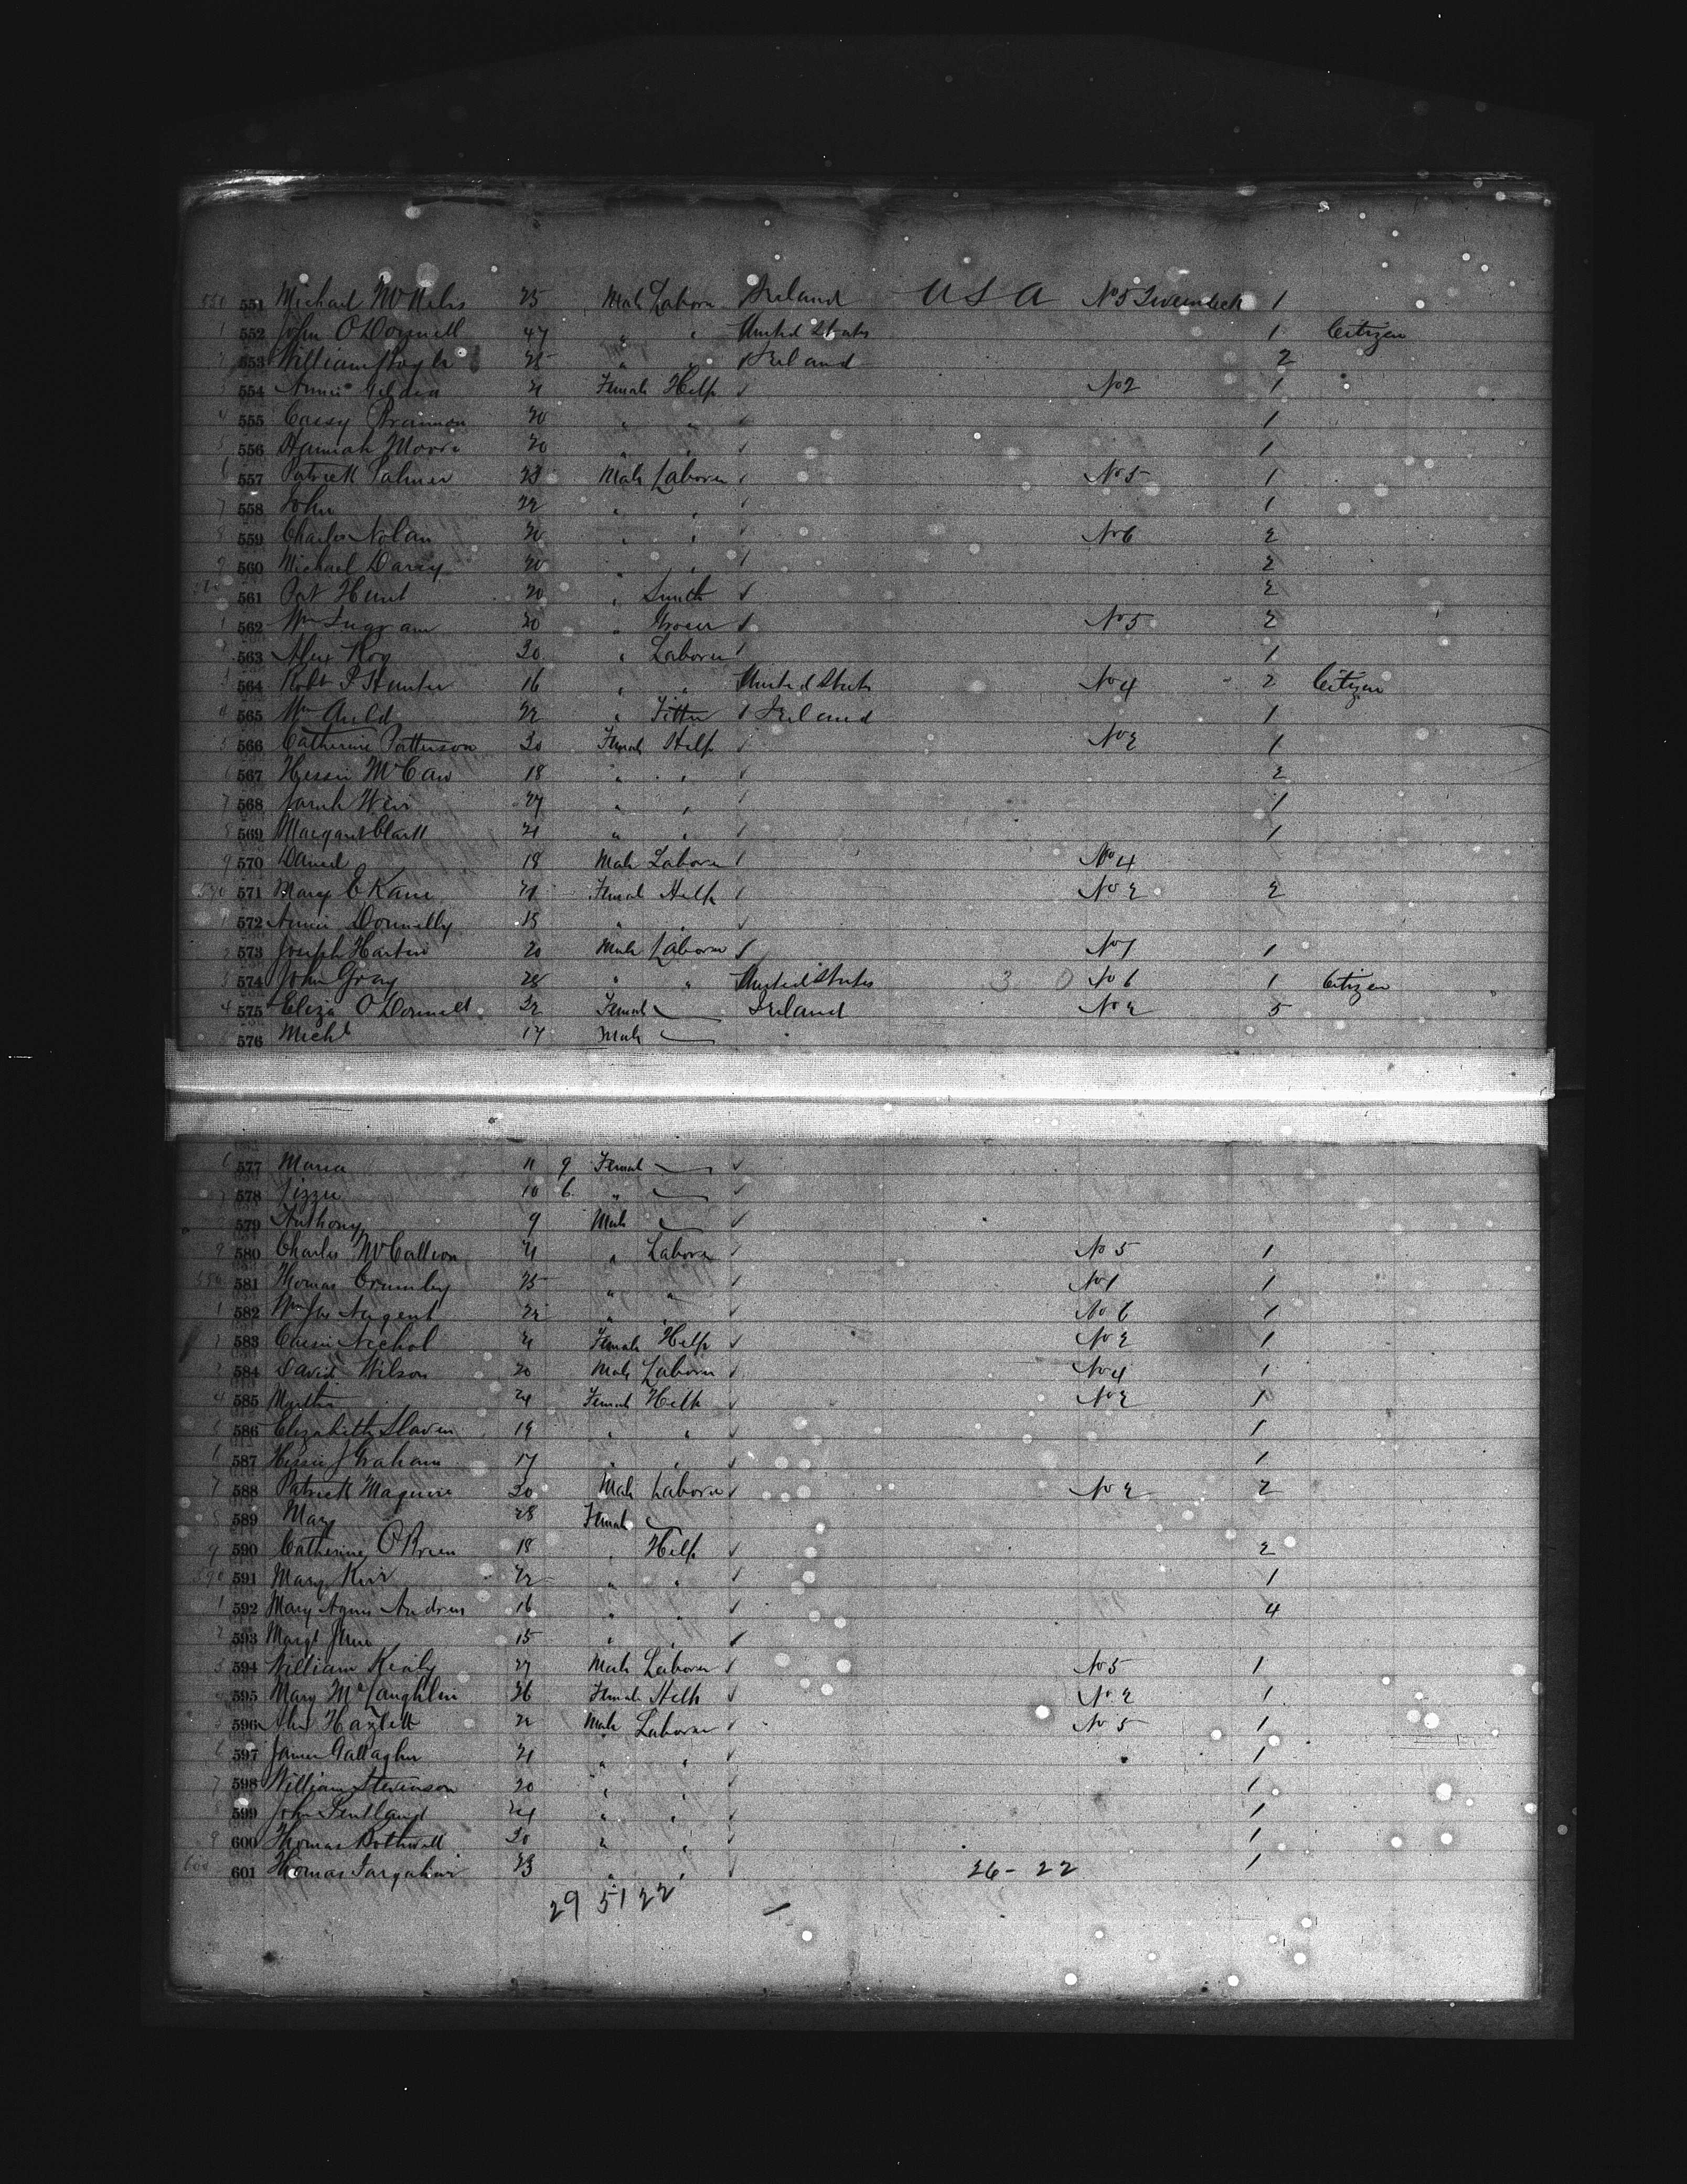 551 Michael 25 Male Laborer Ireland USA No 5 1
552 John O'Donnell 47 " " United States 1 Citizen
553 William 25 " " Ireland 2
554 Annie 21 Female Help No 2 1
555 Cassy Brannon 20 " " 1
556 Hannah Moore 20 " " 1
557 Patrick Palmer 23 Male Laborer No 5 1
558 John 22 " " 1
559 Charles Nolan 20 " " No 6 2
560 Michael Darcy 20 " 2
561 Pat Hunt 20 " Smith 2
562 Wm Ingram 20 " Grocer No 5 2
563 Alex Roy 30 " Laborer 1
564 Robt P Hunter 16 " " United States No 4 2 Citizen
565 Wm Auld 22 " Fitter Ireland 1
566 Catherine Patterson 30 Female Help No 2 1
567 Hessie McCaw 18 " " 2
568 Sarah Weir 27 " " 1
569 Margaret Clark 21 " " 1
570 Daniel 18 Male Laborer No 4
571 Mary E Kane 21 Female Help No 2 2
572 Annie Donnelly 15 " "
573 Joseph Hartin 20 Male Laborer No 1 1
574 John Gray 28 " " United States 3 0 No 6 1 Citizen
575 Eliza O'Donnell 32 Female Ireland No 2 5
576 Michl 17 Male
577 Maria 11 9 Female
578 Lizzie 10 6 "
579 Anthony 9 Male
580 Charles McCallion 21 " Laborer No 5 1
581 Thomas Crumley 25 " " No 1 1
582 Wm Jas Nugent 22 " " No 6 1
583 Cassie Nichol 21 Female Help No 2 1
584 David Wilson 20 Male Laborer No 4 1
585 24 Female Help No 2 1
586 Elizabeth Slaven 19 " " 1
587 Hessie J Graham 17 " " 1
588 Patrick Maguire 30 Male Laborer No 2 2
589 Mary 28 Female
590 Catherine O'Brien 18 " Help 2
591 Mary Kerr 22 " " 1
592 Mary Agnes Andrews 16 " " 4
593 Margt Jane 15 " "
594 William Kealy 27 Male Laborer No 5 1
595 Mary McLaughlin 26 Female Help No 2 1
596 Hazlett 22 Male Laborer No 5 1
597 James Gallagher 21 " " 1
598 William Stevenson 20 " " 1
599 John Pentland 24 " " 1
600 Thomas Bothwell 30 " " 1
601 Thomas 23 " " 26-22 1
29 51 22